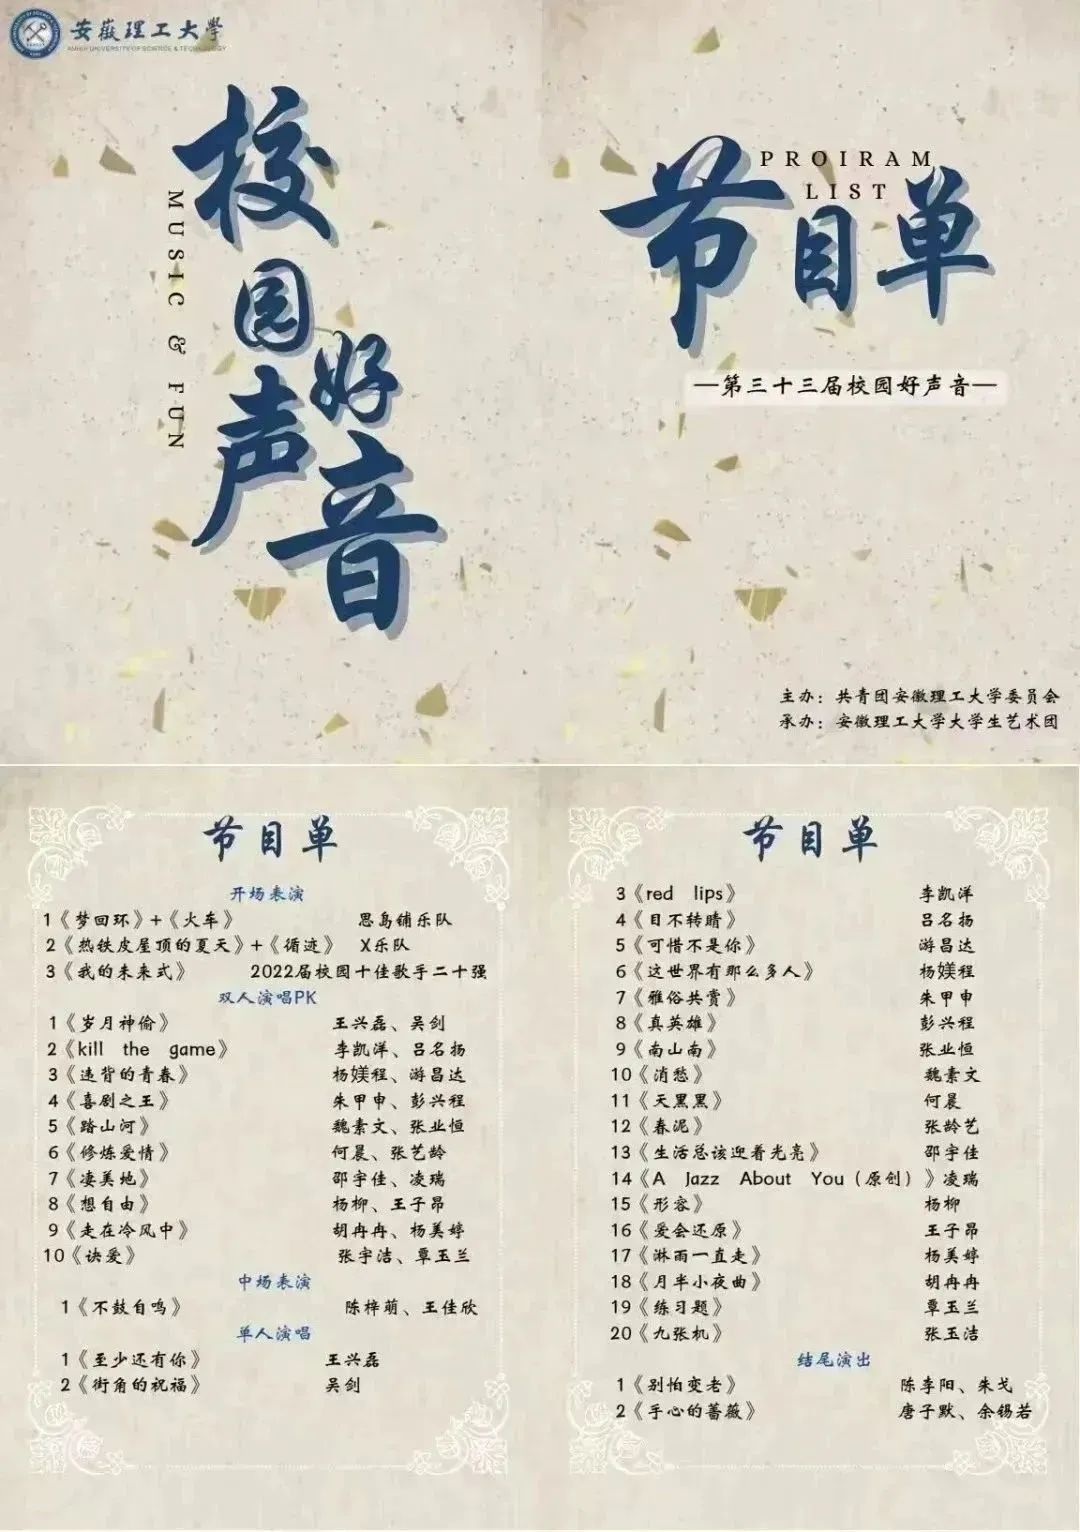 安徽理工大学
ANHUI UNIVERSITY OF SCIENCE & TECHNOLOGY
校园好声音
MUSIC & FUN
PROIRAM
LIST
节目单
—第三十三届校园好声音—
主办：共青团安徽理工大学委员会
承办：安徽理工大学大学生艺术团
节目单
开场表演
1《梦回环》+《火车》 思岛铺乐队
2《热铁皮屋顶的夏天》+《循迹》 X乐队
3《我的未来式》 2022届校园十佳歌手二十强
双人演唱PK
1《岁月神偷》 王兴磊、吴剑
2《kill the game》 李凯洋、吕名扬
3《违背的青春》 杨媄程、游昌达
4《喜剧之王》 朱甲申、彭兴程
5《踏山河》 魏素文、张业恒
6《修炼爱情》 何晨、张艺龄
7《凄美地》 邵宇佳、凌瑞
8《想自由》 杨柳、王子昂
9《走在冷风中》 胡冉冉、杨美婷
10《诀爱》 张宇洁、覃玉兰
中场表演
1《不鼓自鸣》 陈梓萌、王佳欣
单人演唱
1《至少还有你》 王兴磊
2《街角的祝福》 吴剑
节目单
3《red lips》 李凯洋
4《目不转睛》 吕名扬
5《可惜不是你》 游昌达
6《这世界有那么多人》 杨媄程
7《雅俗共赏》 朱甲申
8《真英雄》 彭兴程
9《南山南》 张业恒
10《消愁》 魏素文
11《天黑黑》 何晨
12《春泥》 张龄艺
13《生活总该迎着光亮》 邵宇佳
14《A Jazz About You（原创）》凌瑞
15《形容》 杨柳
16《爱会还原》 王子昂
17《淋雨一直走》 杨美婷
18《月半小夜曲》 胡冉冉
19《练习题》 覃玉兰
20《九张机》 张玉洁
结尾演出
1《别怕变老》 陈李阳、朱戈
2《手心的蔷薇》 唐子默、余锡若